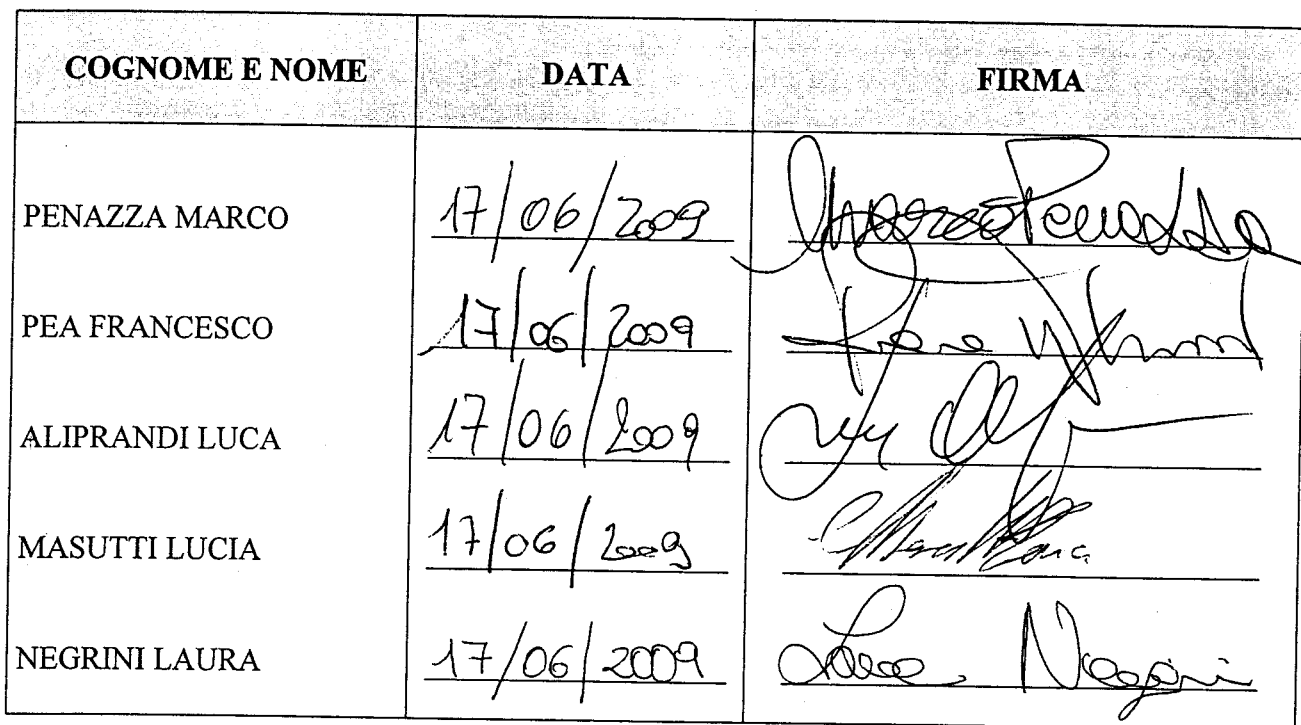 COGNOME E NOME DATA FIRMA
PENAZZA MARCO 17/06/2009 Marco Penazza
PEA FRANCESCO 17/06/2009
ALIPRANDI LUCA 17/06/2009
MASUTTI LUCIA 17/06/2009
NEGRINI LAURA 17/06/2009 Laura Negrini